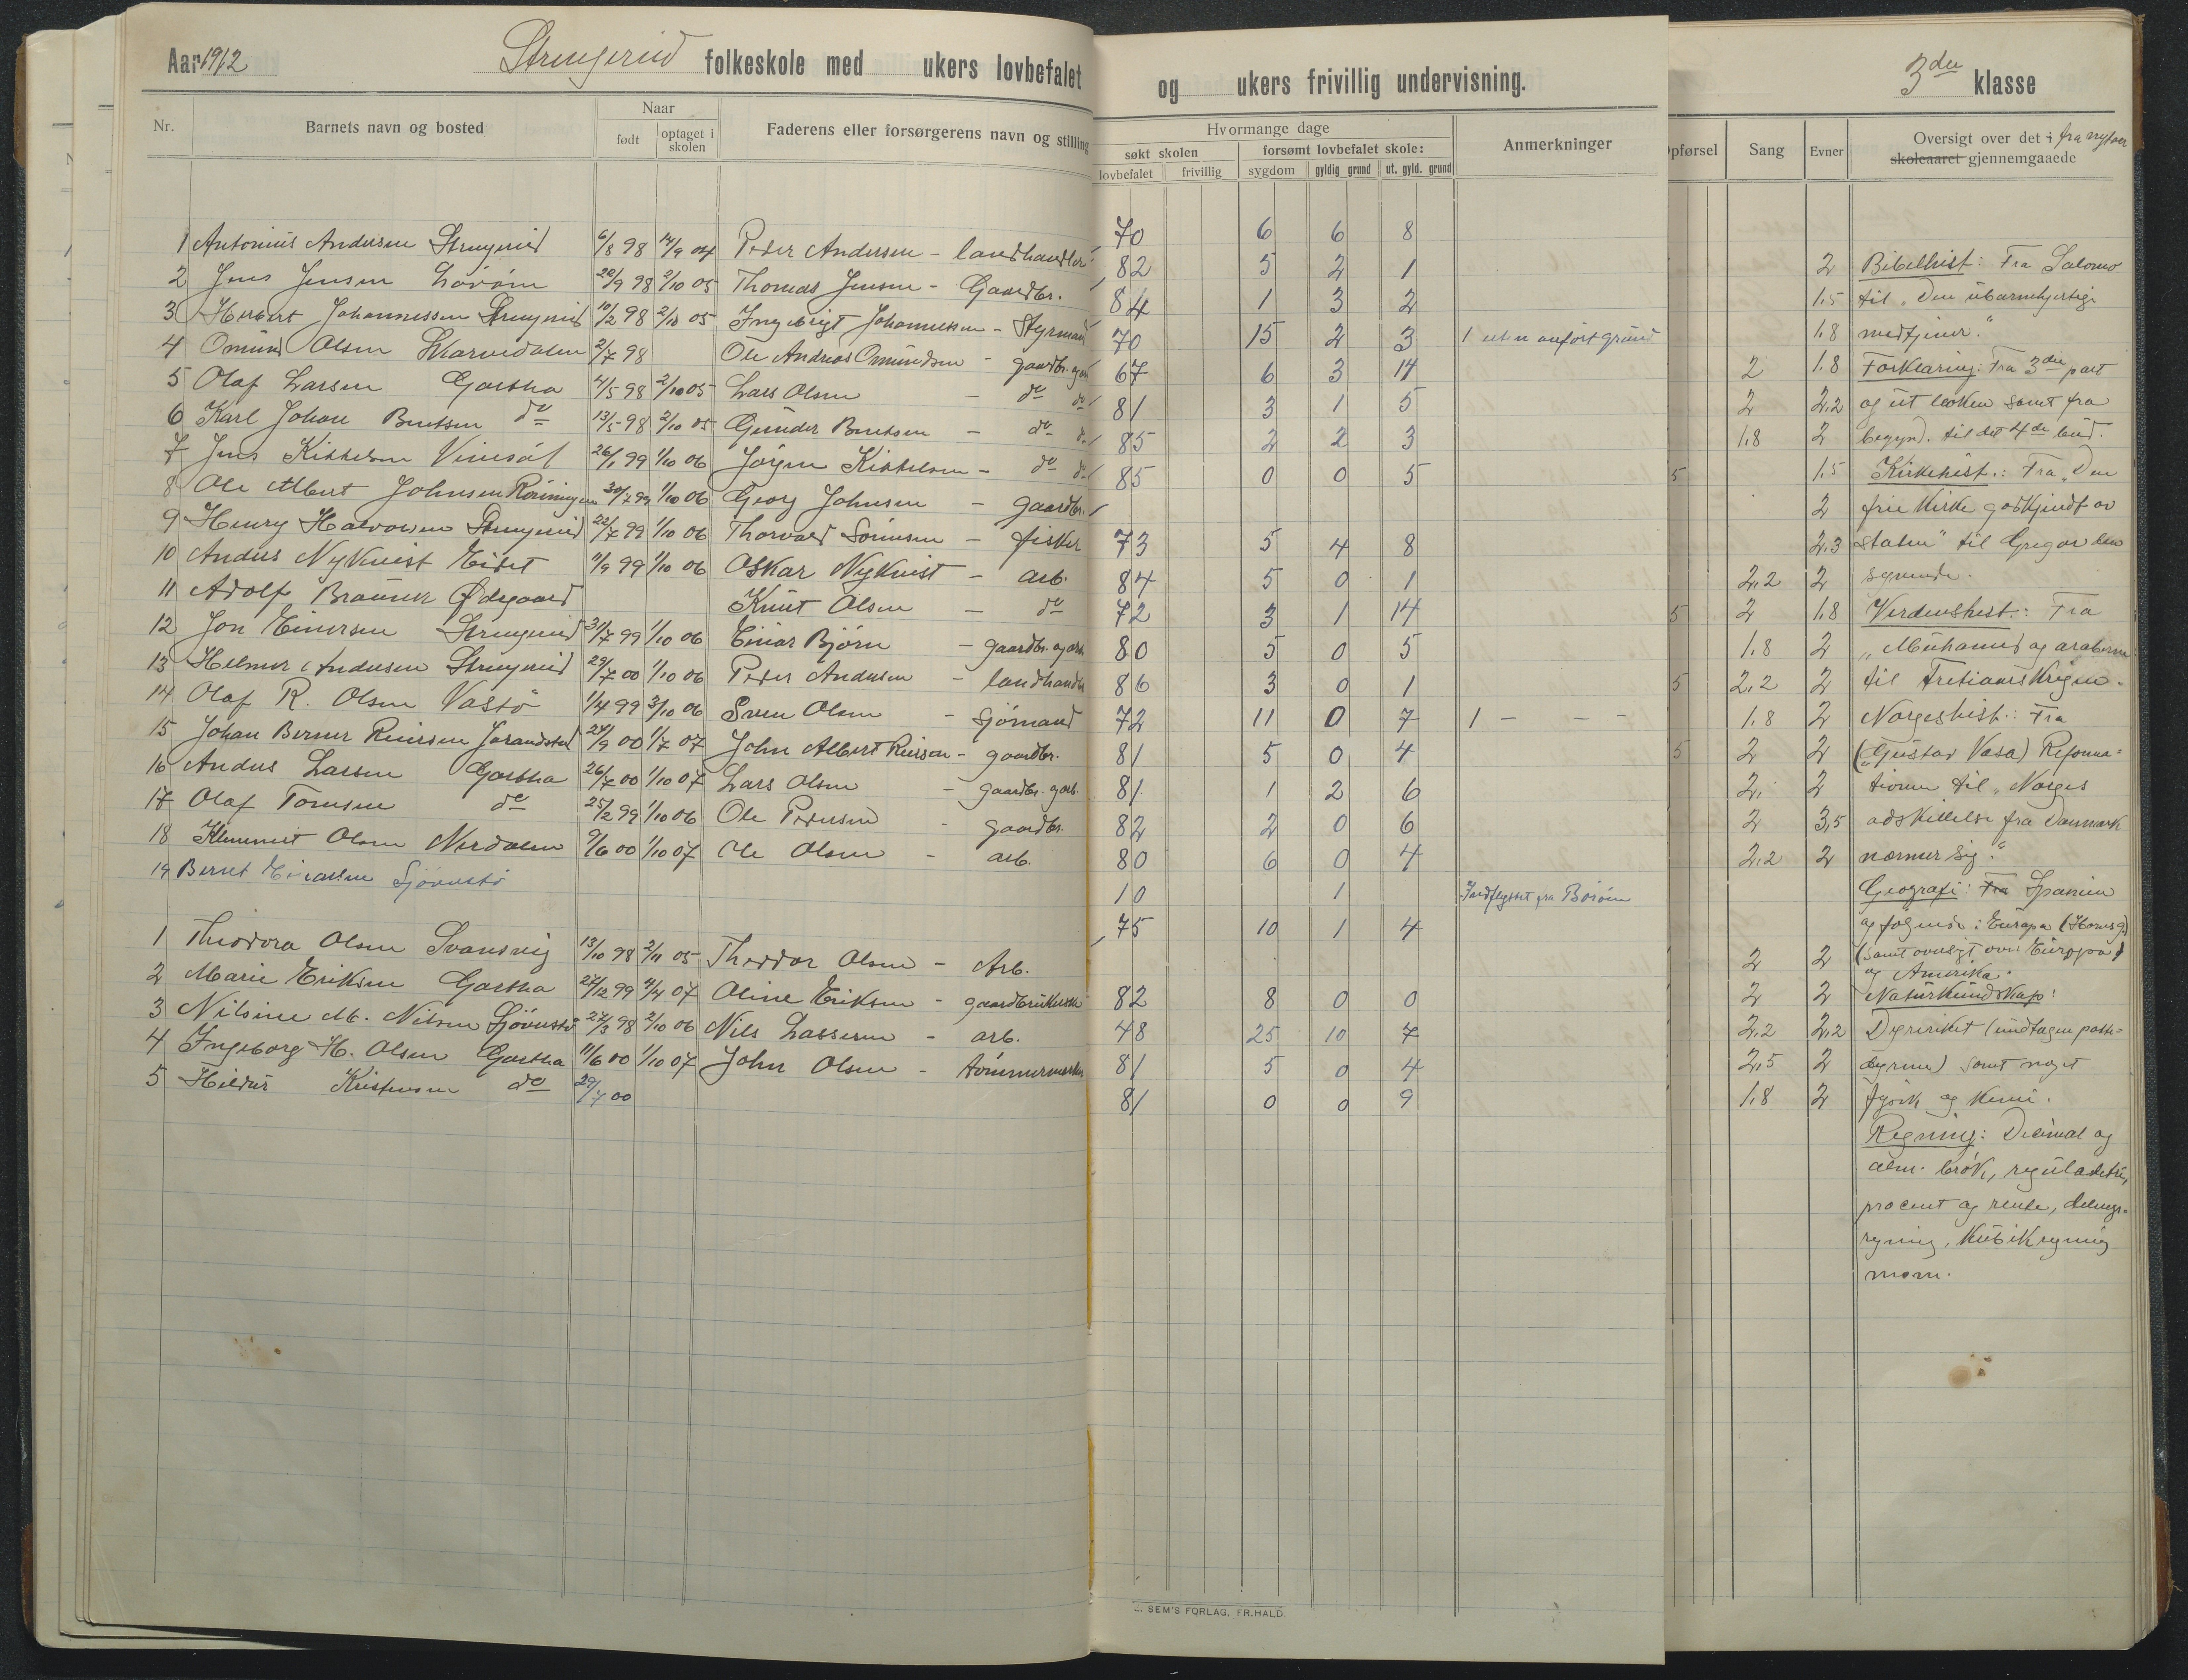 Aar 1912 Strengereid folkeskole med ukers lovbefalet og ukers frivillig undervisning. 3die klasse
Nr. Barnets navn og bosted Naar født optaget i skolen Faderens eller forsørgerens navn og stilling
Hvormange dage
søkt skolen forsømt lovbefalet skole:
lovbefalet frivillig sygdom gyldig grund ut. gyld. grund Anmerkninger
pførsel Sang Evner Oversigt over det i fra nytaar
skoleaaret gjennemgaaede
1 Antonius Andersen Strengereid 6/8 98 14/9 04 Peder Andersen - landhandler 70 6 6 8
2 Jens Jensen 22/9 98 2/10 05 Thomas Jensen - Gaardbr. 82 5 2 1
3 Herbert Johannessen Strengereid 10/2 98 2/10 05 Ingebrigt Johannessen - Styrmand 84 1 3 2
4 Omund Olsen Skarvedalen 2/7 98 Ole Andreas Omundsen - gaardbr. og arb 70 15 2 3 1 uten anført grund
5 Olaf Larsen Gartha 4/5 98 2/10 05 Lars Olsen - do do 67 6 3 14
6 Karl Johan Berntsen do 13/5 98 2/10 05 Gunder Berntsen - do do 81 3 1 5
7 Jens Kittelsen Vinesøl 26/1 99 1/10 06 Jørgen Kittelsen - do do 85 2 2 3
8 Ole Albert Johnsen Røiningen 30/7 99 1/10 06 Georg Johnsen - gaardbr. 85 0 0 5
9 Henry Halvorsen Strengereid 22/7 99 1/10 06 Thorvald Sørensen - fisker 73 5 4 8
10 Anders Nykvist Eidet 11/9 99 1/10 06 Oskar Nykvist - arb. 84 5 0 1
11 Adolf Ødegaard Knut Olsen - do 72 3 1 14
12 Jon Einersen Strengereid 31/7 99 1/10 06 Einar Bjørn - gaardbr. og arb 80 5 0 5
13 Helmer Andersen Strengereid 29/7 00 1/10 06 Peder Andersen - landhandler 86 3 0 1
14 Olaf R. Olsen Vastø 1/4 99 3/10 06 Sven Olsen - Sjømand 72 11 0 7 1 - - -
15 Johan Berner Reiersen Jorandstad 24/9 00 1/7 07 John Albert Reiersen - gaardbr. 81 5 0 4
16 Anders Larsen Gartha 26/7 00 1/10 07 Lars Olsen - gaardbr. g arb. 81 1 2 6
17 Olaf Tomsen do 25/2 99 1/10 06 Ole Pedersen - gaardbr. 82 2 0 6
18 Klemmet Olsen Nerdalen 9/6 00 1/10 07 Ole Olsen - arb. 80 6 0 4
19 Bernt Einarsen Sjøvestø 10 1 Indflyttet fra Borøen
1 Theodora Olsen Svansvig 13/10 98 2/11 05 Theodor Olsen - Arb. 75 10 1 4
2 Marie Eriksen Gartha 27/12 99 4/4 07 Oline Eriksen - gaardbrukerske 82 8 0 0
3 Nilsine M. Nilsen Sjøvestø 27/3 98 2/10 06 Nils Lassesen - arb. 48 25 10 7
4 Ingeborg H. Olsen Gartha 11/6 00 1/10 07 John Olsen - tømmermand 81 5 0 4
5 Hildur Kristensen do 29/7 00 81 0 0 9
2 Bibelhist: Fra Salomo
1.5 til "Den ubarmhjertige
1.8 medtjener."
2 1.8 Forklaring: Fra 3die part
2 2,2 og ut boken samt fra
1.8 2 begynd. til det 4de bud.
5 1.5 Kirkehist.: Fra "Den
2 frie kirke godkjendt av
2,3 staten" til Gregor den
2,2 2 syvende.
5 2 1.8 Verdenshist.: Fra
1.8 2 "Muhamed og araberne
5 2,2 2 til Tretiaarskrigen.
1.8 2 Norgeshist.: Fra
5 2 2 ("Gustav Vasa) Reforma=
2. 2 tionen til "Norges
2 3,5 adskillelse fra Danmark
2,2 2 nærmer sig."
Geografi: Fra Spanien
og følgende i Europa (Horns g)
2 2 (samt oversigt over Europa)
og Amerika.
2 2 Naturkundskap:
2,2 2,2 Dyreriket (undtagen padde=
2,5 2 dyrene) samt noget
1.8 2 fysik og kemi.
Regning: Desimal og
alm. brøk, reguladetri,
procent og rente, delings=
regning, kubikregning
m.m.
SEM'S FORLAG, FR.HALD.